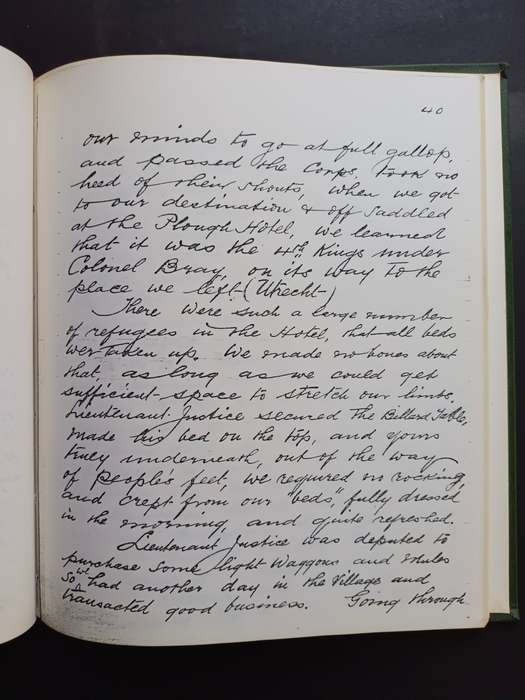 40
our minds to go at full gallop,
and passed the Corps, took no
heed of their shouts, when we got
to our destination & off saddled
at the Plough Hotel, we learned
that it was the 4th Kings under
Colonel Bray, on its way to the
place we left (Utrecht)
There were such a large number
of refugees in the Hotel, that all beds
wer taken up. We made no bones about
that as long as we could get
sufficient space to stretch our limbs.
Lieutenant Justice secured the Billard Table,
made his bed on the top, and yours
truly underneath, out of the way
of people's feet, we required no rocking,
and crept from our "beds", fully dressed
in the morning, and quite refreshed.
Lieutenant Justice was deputed to
purchase some light Waggons and Mules
So we had another day in the Village and
transacted good business. Going through